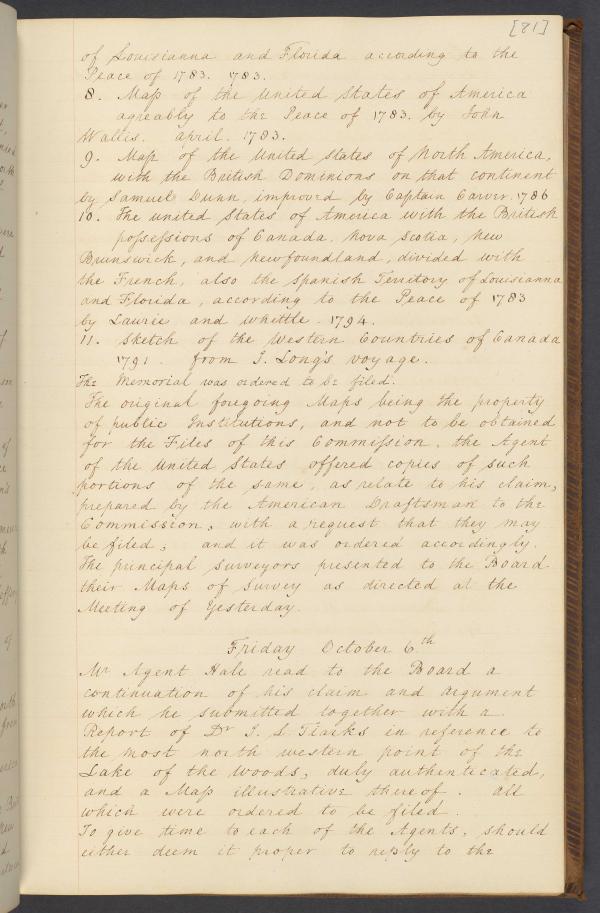 [81]
of Louisianna and Florida according to the
Peace of 1783. 1783.
8. Map of the United States of America
agreably to the Peace of 1783. by John
Wallis. april. 1783.
9. Map of the United states of North America,
with the British Dominions on that continent
by Samuel Dunn, improved by Captain Carver. 1786
10. The united States of America with the British
possessions of Canada, Nova Scotia, New
Brunswick, and Newfoundland, divided with
the French, also the Spanish Territory of Louisianna
and Florida, according to the Peace of 1783
by Laurie and Whittle. 1794.
11. Sketch of the Western Countries of Canada
1791. from J. Long's voyage.
The Memorial was ordered to be filed.
The original foregoing Maps being the property
of public Institutions, and not to be obtained
for the Files of this Commission, the Agent
of the United States offered copies of such
portions of the same, as relate to his claim,
prepared by the American Draftsman to the
Commission, with a request that they may
be filed; and it was ordered accordingly.
The principal surveyors presented to the Board
their Maps of Survey as directed at the
Meeting of Yesterday.
Friday October 6th
Mr Agent Hale read to the Board a
continuation of his claim and argument
which he submitted together with a
Report of Dr J. L Tiarks in reference to
the most north western point of the
Lake of the Woods, duly authenticated,
and a Map illustrative thereof. all
which were ordered to be filed.
To give time to each of the Agents, should
either deem it proper to reply to the